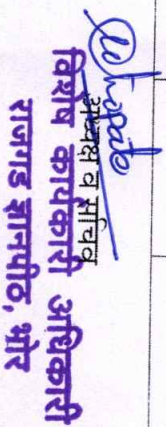 अध्यक्ष व सचिव
विशेष कार्यकारी अधिकारी
राजगड ज्ञानपीठ, भोर